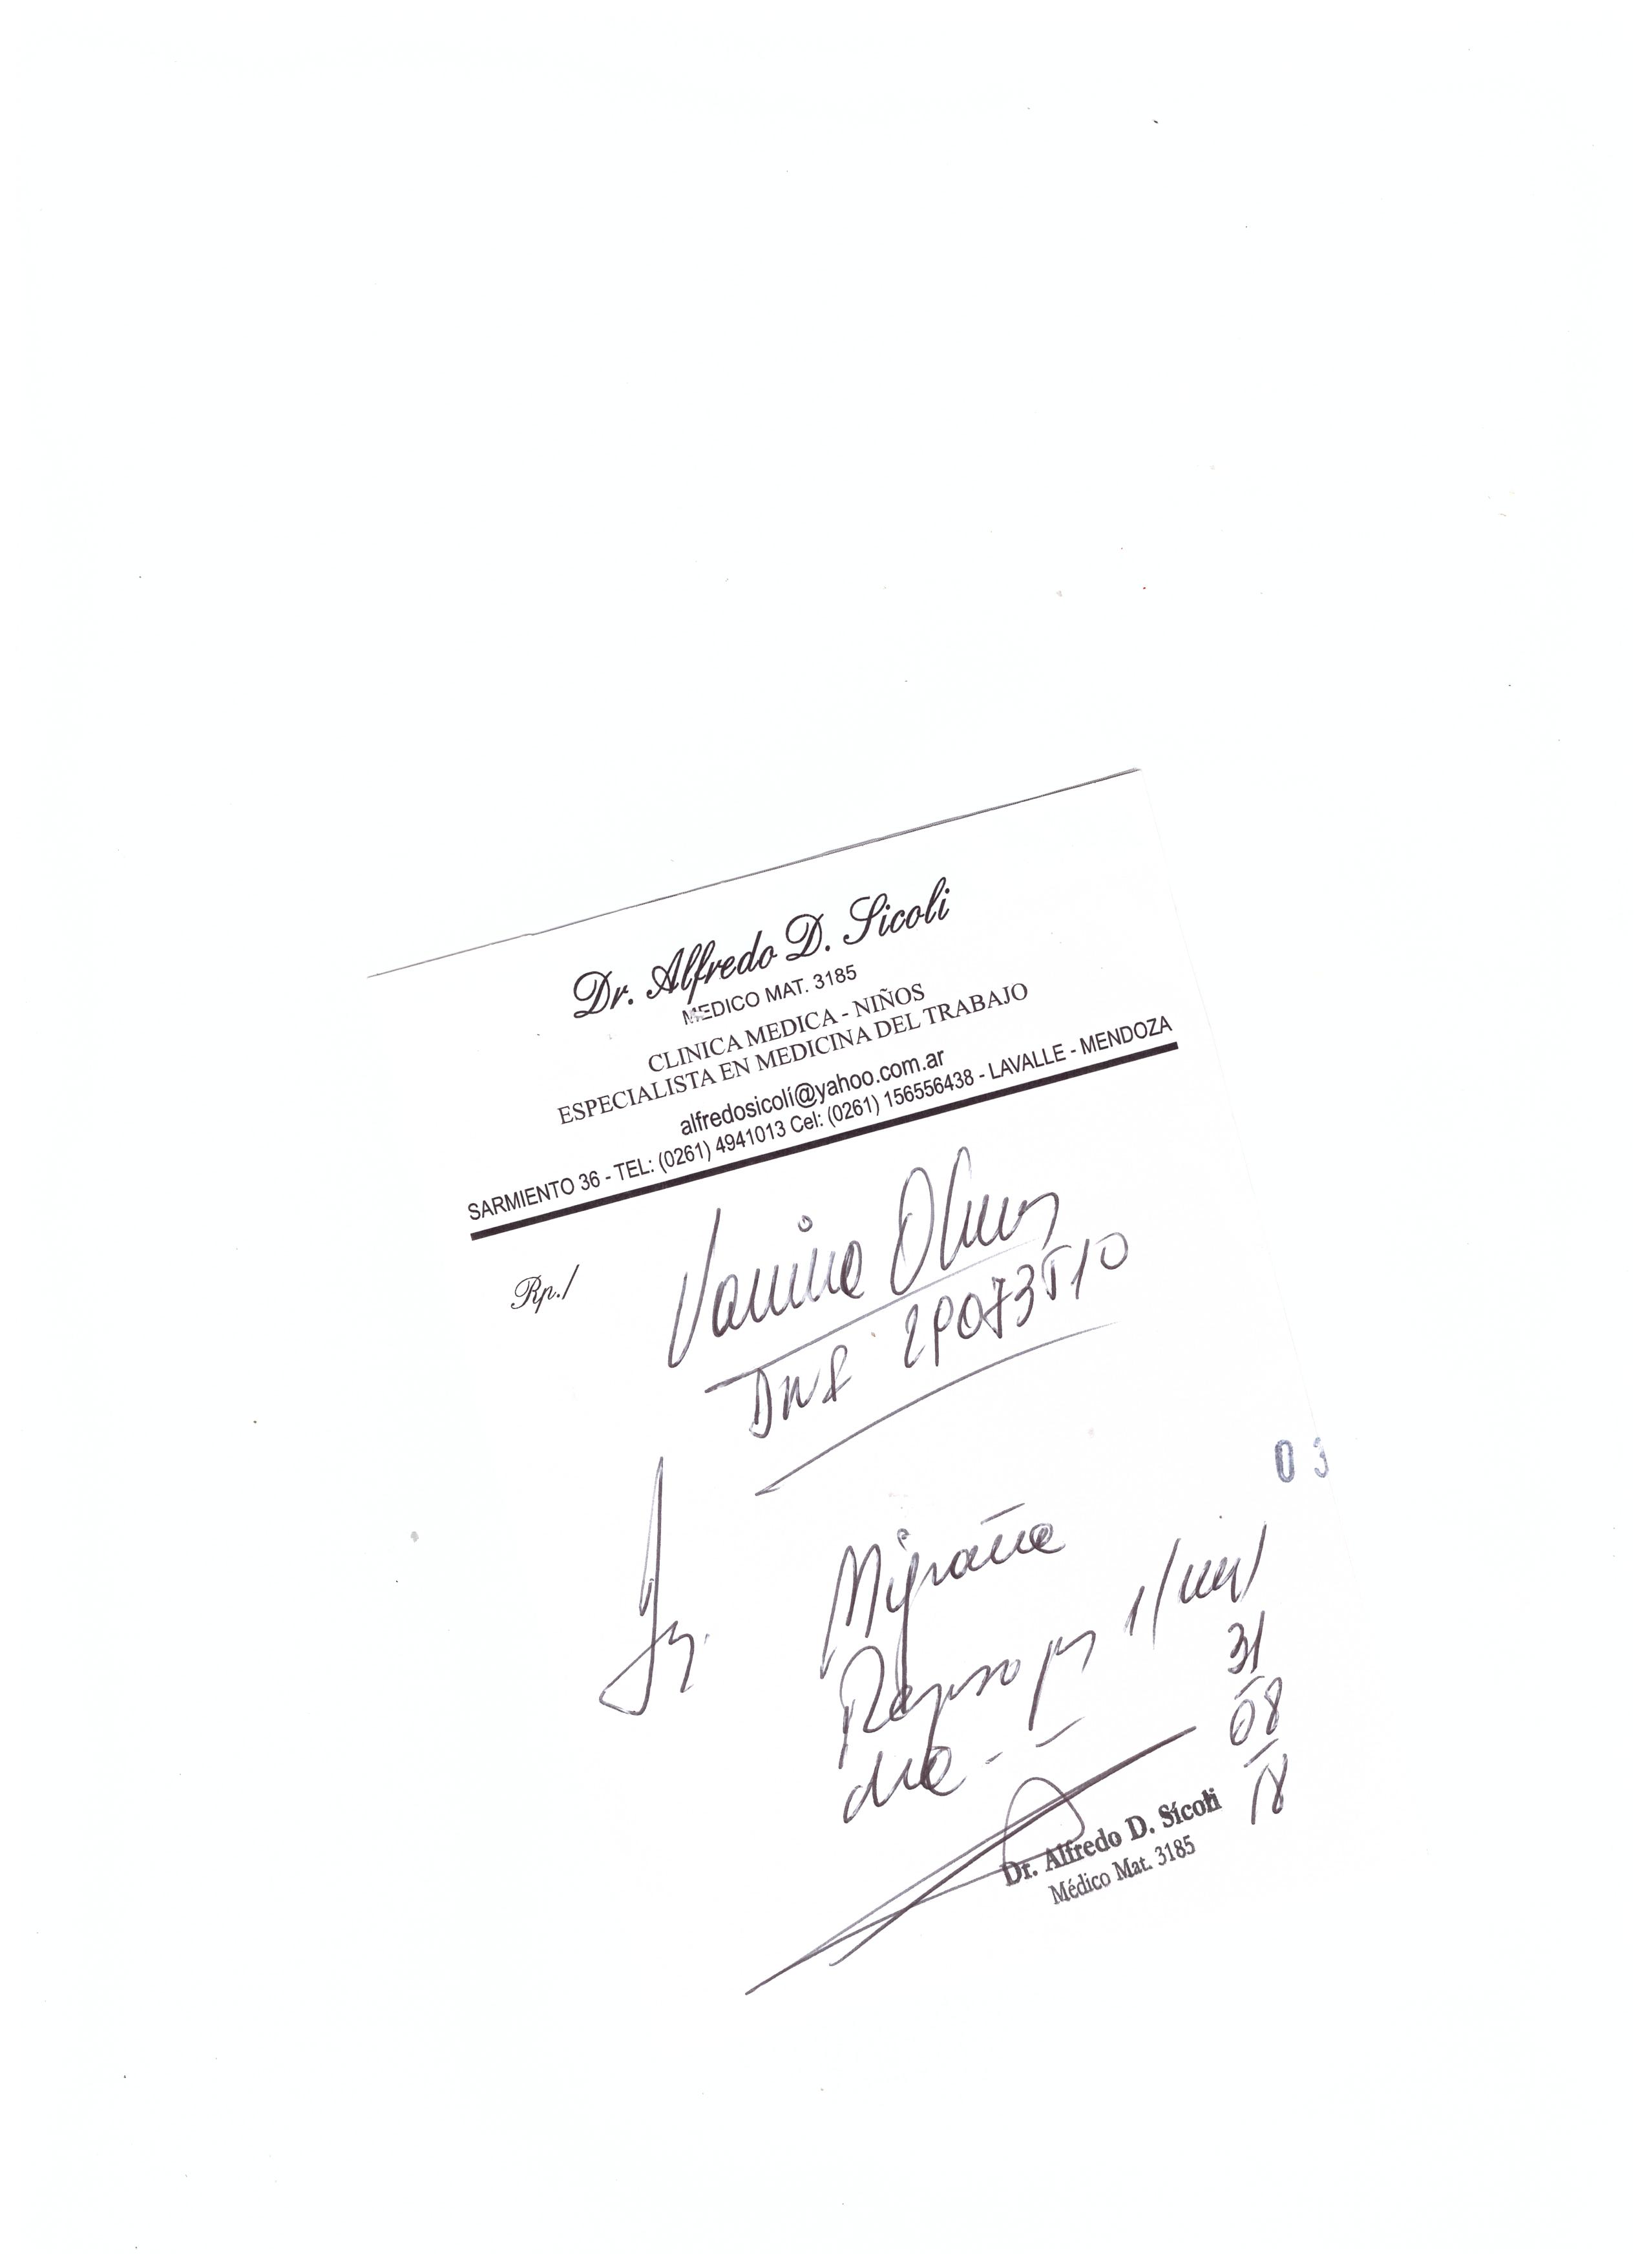 Dr. Alfredo D. Sicoli
MEDICO MAT. 3185
CLINICA MEDICA - NIÑOS
ESPECIALISTA EN MEDICINA DEL TRABAJO
alfredosicolí@yahoo.com.ar
SARMIENTO 36 - TEL: (0261) 4941013 Cel: (0261) 156556438 - LAVALLE - MENDOZA
Rp./
Vanina
03
Migraña
Reposo por 1/un/
31
08
18
dia -
Dr. Alfredo D. Sícoli
Médico Mat. 3185